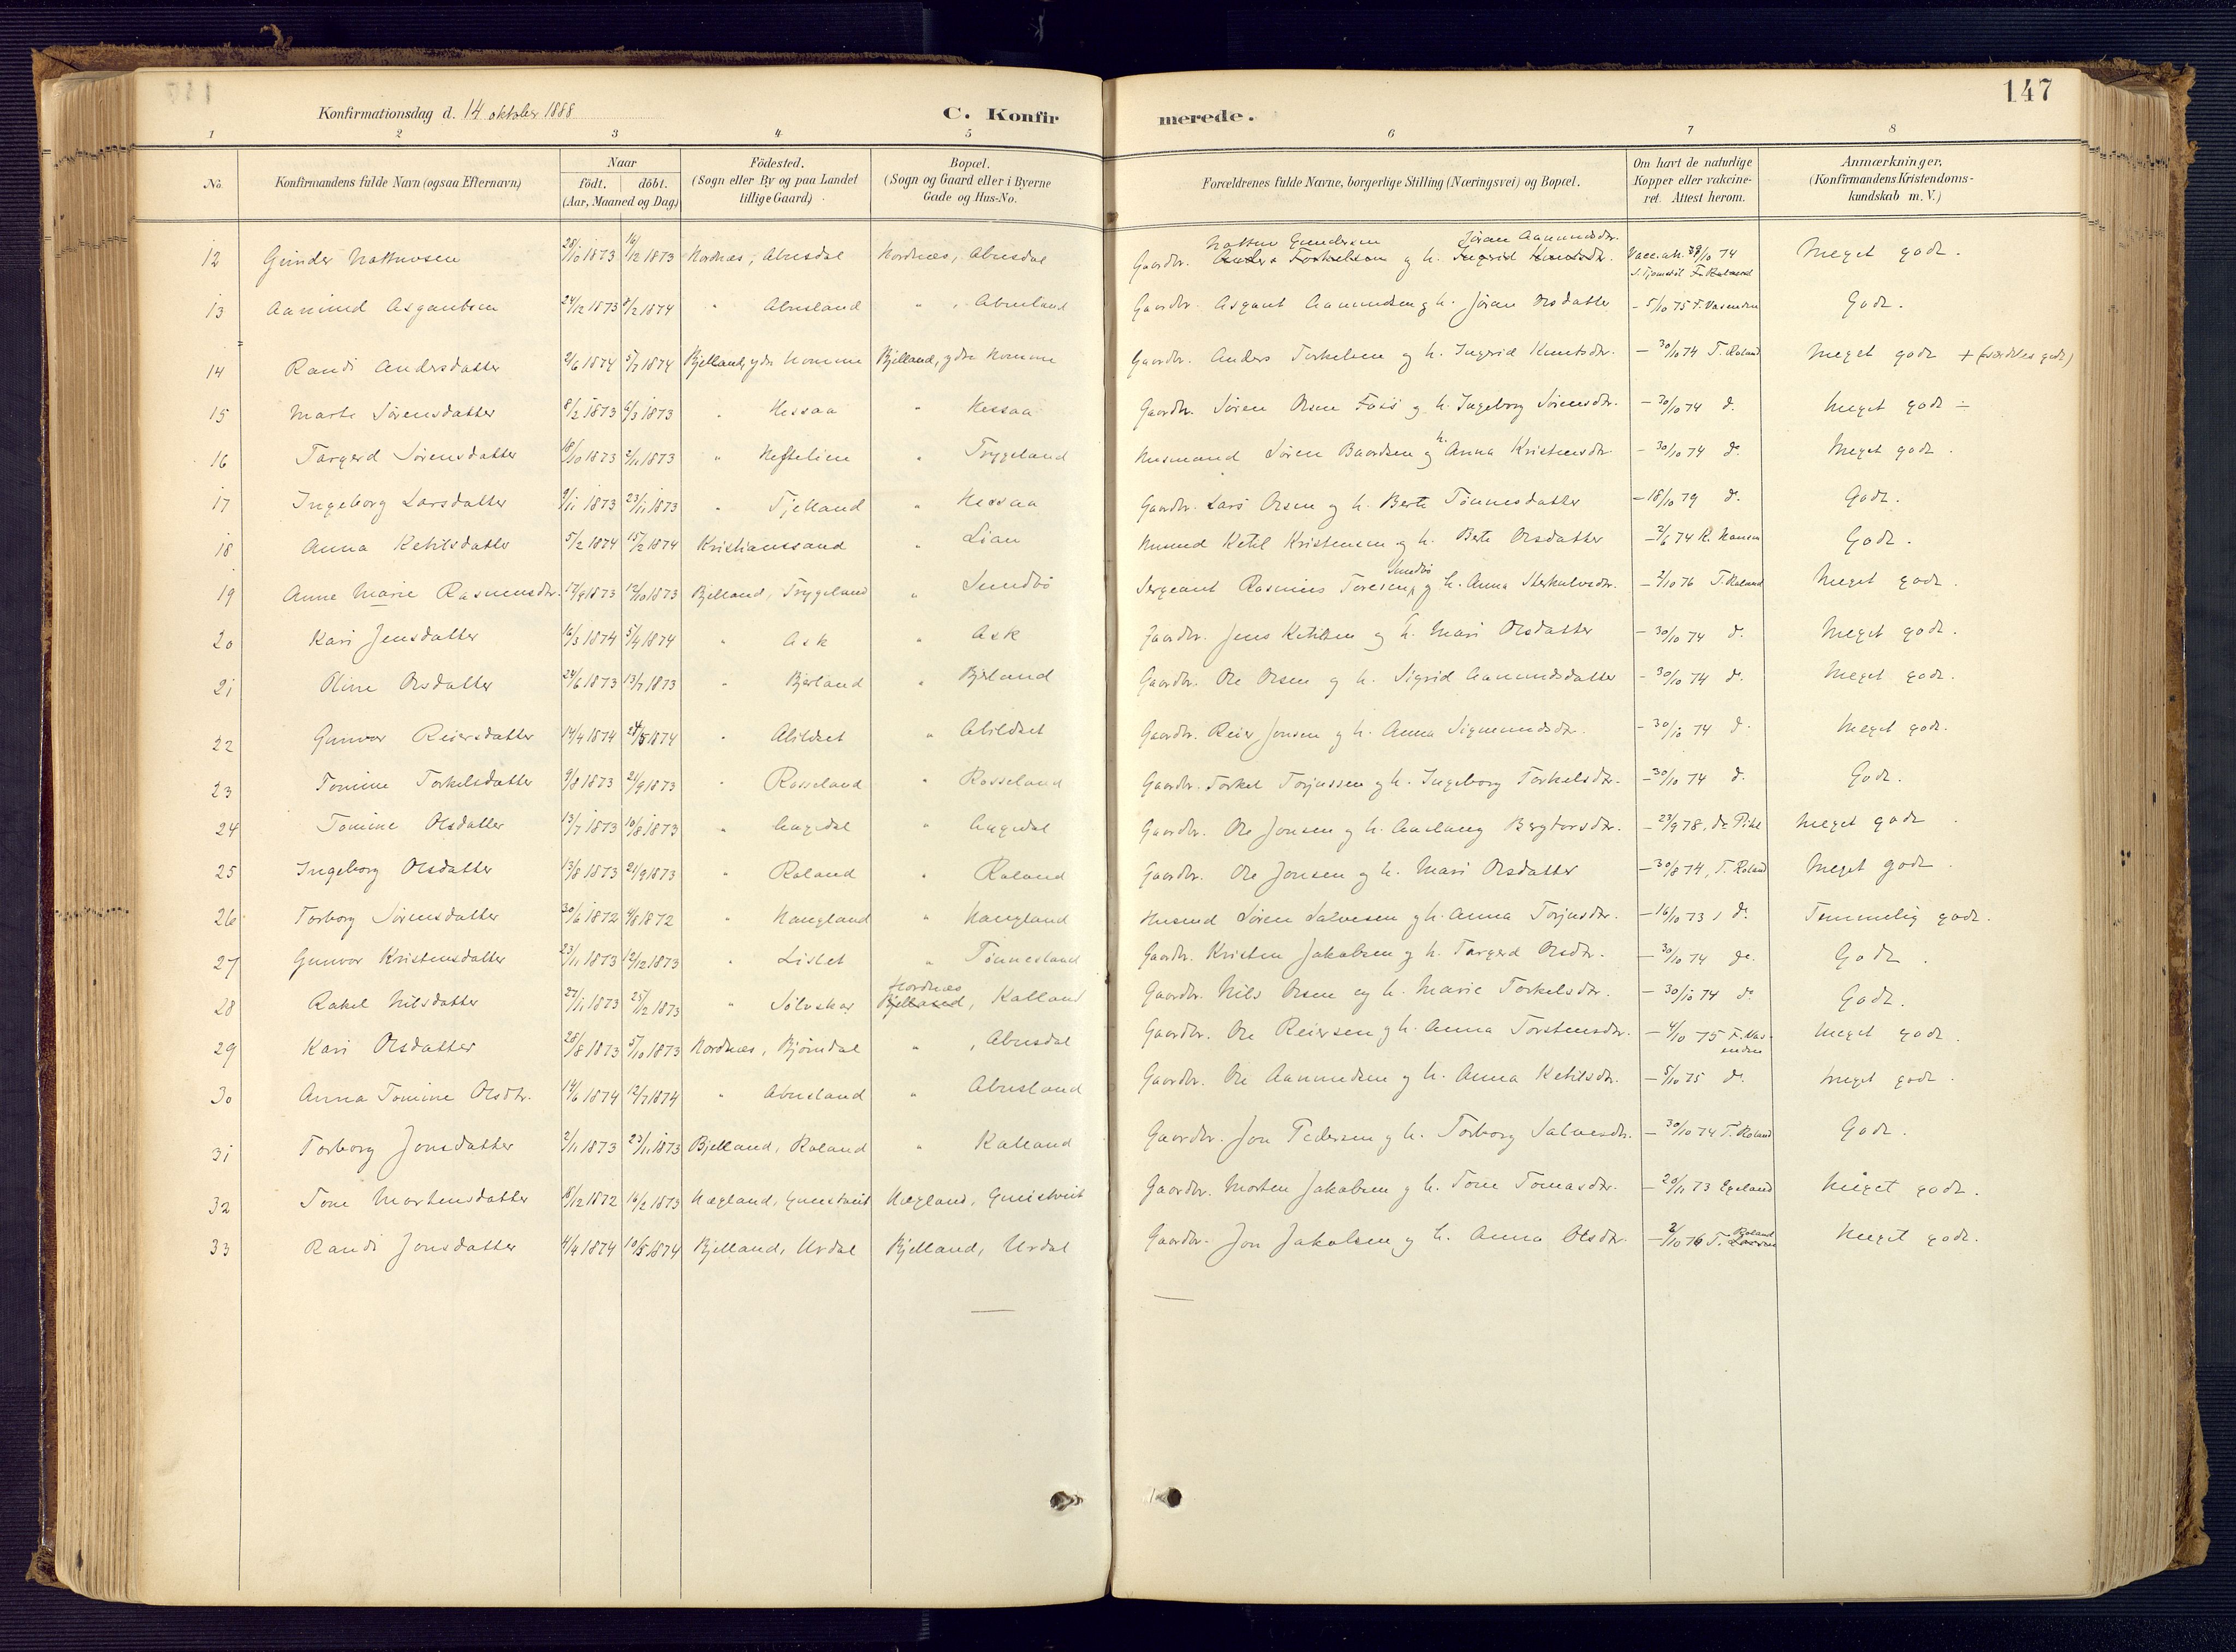 147
Konfirmationsdag d. 14 oktober 1888
C. Konfirmerede.
1 2 3 4 5 6 7 8
No. Konfirmandens fulde Navn (ogsaa Efternavn) Naar födt. döbt. (Aar, Maaned og Dag) Födested. (Sogn eller By og paa Landet tillige Gaard) Bopæl. (Sogn og Gaard eller i Byerne Gade og Hus-No. Forældrenes fulde Navne, borgerlige Stilling (Næringsvei) og Bopæl. Om havt de naturlige Kopper eller vakcineret. Attest herom. Anmærkninger, (Konfirmandens Kristendomskundskab m. V.)
12 Gunder 28/10 1873 16/12 1873 Hordnæs, Abusdal Hordnæs, Abusdal Gaardbr. Gundersen Jöran Aanundsdr. Anders Torkelsen og h. Ingerid Knutsdr. Vacc. att. 74 Meget godt.
13 Aanund Asgautsen 24/12 1873 8/2 1874 " Abusland " , Abusland Gaardbr. Asgaut Aanundsen og h. Jöran Olsdatter – 5/10 75 F. Vasenden Godt.
14 Randi Andersdatter 2/6 1874 5/7 1874 Bjelland, ydre Homme Bjelland, ydre Homme Gaardbr. Anders Torkelsen og h. Ingerid Knutsdr. – 30/10 74 T. Roland Meget godt + (særdeles godt)
15 Marte Sörensdatter 8/2 1873 6/3 1873 " Hessaa " Hessaa Gaardbr. Sören Olsen Foss og h. Ingeborg Sörensdr. – 30/10 74 do. Meget godt ÷
16 Targerd Sörensdatter 18/10 1873 2/11 1873 " Heftelien " Trygeland Husmand Sören Baardsen og h. Anna Kristensdr. – 30/10 74 do. Meget godt.
17 Ingeborg Larsdatter 9/11 1873 23/11 1873 " Tjelland " Hessaa Gaardbr. Lars Olsen og h. Berte Tönnesdatter – 18/10 79 do. Godt.
18 Anna Ketilsdatter 5/2 1874 15/2 1874 Kristianssand " Lian Husmd Ketil Kristensen og h. Berte Olsdatter – 2/6 74 K. Hansen Godt.
19 Anne Marie Rasmusdtr. 17/9 1873 12/10 1873 Bjelland, Trygeland " Sundbö Sergeant Rasmus Toresen Sundbö og h. Anna Sterkulvsdr. – 2/10 76 T. Roland Meget godt.
20 Kari Jensdatter 16/3 1874 5/4 1874 " Ask " Ask Gaardbr. Jens Ketilsen og h. Mari Olsdatter – 30/10 74 do. Meget godt.
21 Oline Olsdatter 24/6 1873 13/7 1873 " Bjerland " Bjerland Gaardbr. Ole Olsen og h. Sigrid Aanundsdatter – 30/10 74 do. Meget godt.
22 Gunvor Reiersdatter 14/4 1874 24/5 1874 " Abildset " Abildset Gaardbr. Reier Jonsen og h. Anna Sigmundsdr. – 30/10 74 do. Meget godt.
23 Tomine Torkelsdatter 9/8 1873 21/9 1873 " Rosseland " Rosseland Gaardbr. Torkel Torjussen og h. Ingeborg Torkelsdr. – 30/10 74 do. Godt.
24 Tomine Olsdatter 13/7 1873 10/8 1873 " " Gaardbr. Ole Jonsen og h. Aaslaug Bergtorsdr. – 23/9 78, Meget godt.
25 Ingeborg Olsdatter 13/8 1873 21/9 1873 " Roland " Roland Gaardbr. Ole Jonsen og h. Mari Olsdatter – 30/8 74, T. Roland Meget godt.
26 Torborg Sörensdatter 30/6 1872 4/8 1872 " Haugland " Haugland Husmd Sören Salvesen og h. Anna Torjusdr. – 16/10 73, do. Temmelig godt.
27 Gunvor Kristensdatter 23/11 1873 12/12 1873 " Listet " Tönnesland Gaardbr. Kristen Jakobsen og h. Targerd Olsdr. – 30/10 74 do. Godt.
28 Rakel Nilsdatter 27/11 1873 25/12 1873 " Sölvskar Hordnæs Bjelland, Kalland Gaardbr. Nils Olsen og h. Marie Torkelsdr. – 30/10 74 do. Godt.
29 Kari Olsdatter 28/8 1873 5/10 1873 Hordnæs, Björndal " , Abusdal Gaardbr. Ole Reiersen og h. Anna Torstensdr. – 4/10 75 F. Vasenden Meget godt.
30 Anna Tomine Olsdtr. 14/6 1874 12/7 1874 " Abusland " Abusland Gaardbr. Ole Aanundsen og h. Anna Ketilsdr. – 5/10 75 do. Meget godt.
31 Torborg Jonsdatter 2/11 1873 23/11 1873 Bjelland, Roland " Kalland Gaardbr. Jon Pedersen og h. Torborg Salvesdr. – 30/10 74 T. Roland Godt.
32 Tone Mortensdatter 18/12 1872 16/2 1873 Hægland, Hægland, Gaardbr. Morten Jakobsen og h. Tone Tomasdr. – 20/11 73 Egeland Meget godt.
33 Randi Jonsdatter 4/4 1874 10/5 1874 Bjelland, Urdal Bjelland, Urdal Gaardbr. Jon Jakobsen og h. Anna Olsdr. – 2/10 76 T. Roland Meget godt.